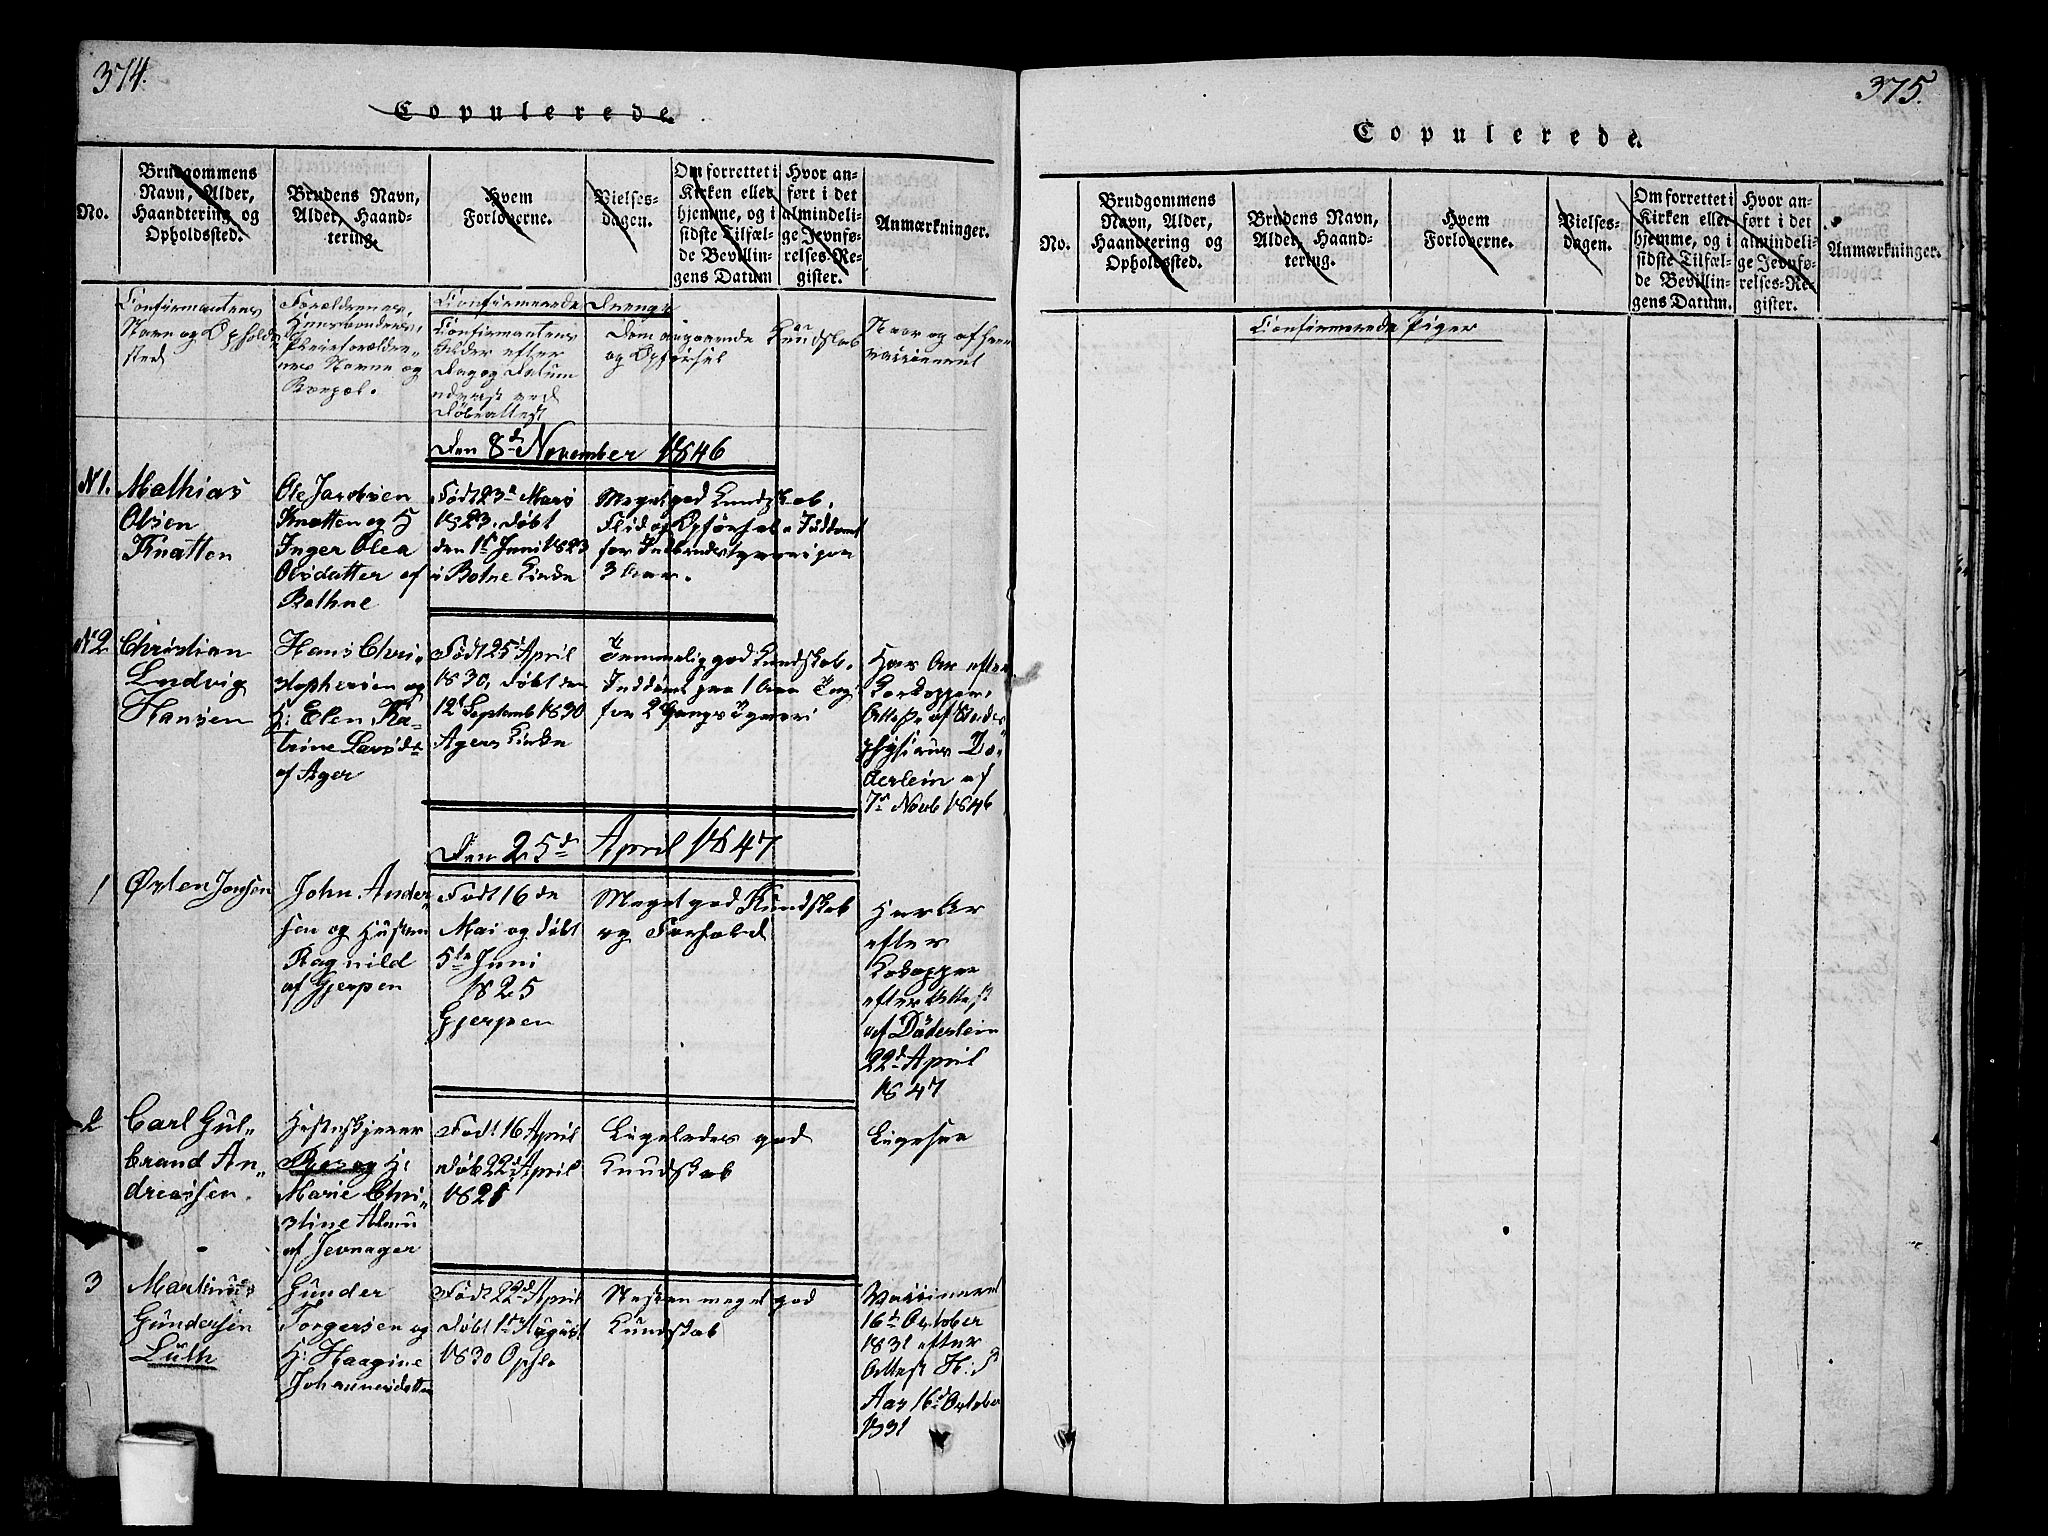 374.
Copulerede.
No.
Brudgommens
Navn, Alder,
Haandtering og
Opholdssted.
Brudens Navn,
Alder, Haand-
tering.
Hvem
Forloverne.
Vielses-
dagen.
Om forrettet i
Kirken eller
hjemme, og i
sidste Tilfæl-
de Bevillin-
gens Datum
Hvor an-
ført i det
almindeli-
ge Jevnfø-
relses-Re-
gister.
Anmærkninger.
Confirmerede Drenge
Confirmantens
Navn og Opholds
sted
Forældrenes,
Huusbondens,
Pleieforældre-
nes Navne og
Confirmantens
Alder efter
Dag og Datum
ved
Døbeattest
og Opførsel
Kundskab
Naar og af hvem
vaccineret
Den 8d November 1846
N1.
Mathias
Olsen
Knatten
Ole Jacobsen
Knatten og H
Inger Olea
Olsdatter af
Bothne
Født 23d Mars
1823. døbt
den 1st Juni 1823
i Botne Kirke
Meget god Kundskab,
Flid og Opførsel. Inddømt
for
3 Aar.
N2
Christian
Ludvig
Hansen
Hans Chri-
stophersen og
H: Elen Ka-
trine Larsdt
af Ager
Født 25d April
1830, døbt den
12t Septemb 1830
Agers Kirke
Temmelig god Kundskab.
Inddømt paa 1 Aar
for 2 Gangs Tyveri
Har Ar efter
Kokopper,
Attest af Stads
physicus Dö-
derlein af
7d Novb 1846
Den 25d April 1847
1
John Ander-
sen og Hustru
Ragnild
af Gjerpen
Født 16de
Mai og døbt
5te Juni
1825
Gjerpen
Meget god Kundskab
og Forhold
Har Ar
efter
Kokopper
efter Attest
af Döderlein
22d April
1847
2
Carl Gul-
brand An-
dreassen.
Hesteskjærer
og H:
Marie Chri-
stine
af Jevnager
Født 16 April
døb 22d April
1821
Ligeledes god
Kundskab
Ligesaa
3
Martinus
Gundersen
Lüth
Gunder
Torgersen og
H: Haagine
Johannesdatter
Født 22d April
Døbt 1st August
1830 Opslo
Næsten meget god
Kundskab
Vaccineret
16d October
1831 efter
Attest H:
Aas 16d October
1831
375.
Copulerede.
No.
Brudgommens
Navn, Alder,
Haandtering og
Opholdssted.
Brudens Navn,
Alder, Haand-
tering.
Hvem
Forloverne.
Vielses-
dagen.
Om forrettet i
Kirken eller
hjemme, og i
sidste Tilfæl-
de Bevillin-
gens Datum.
Hvor an-
ført i det
almindeli-
ge Jevnfø-
relses-Re-
gister.
Anmærkninger.
Confirmerede Piger